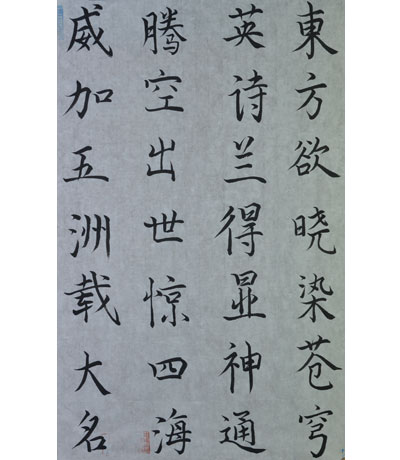 東方欲晓染苍穹
英诗兰得显神通
腾空出世惊四海
威加五洲载大名